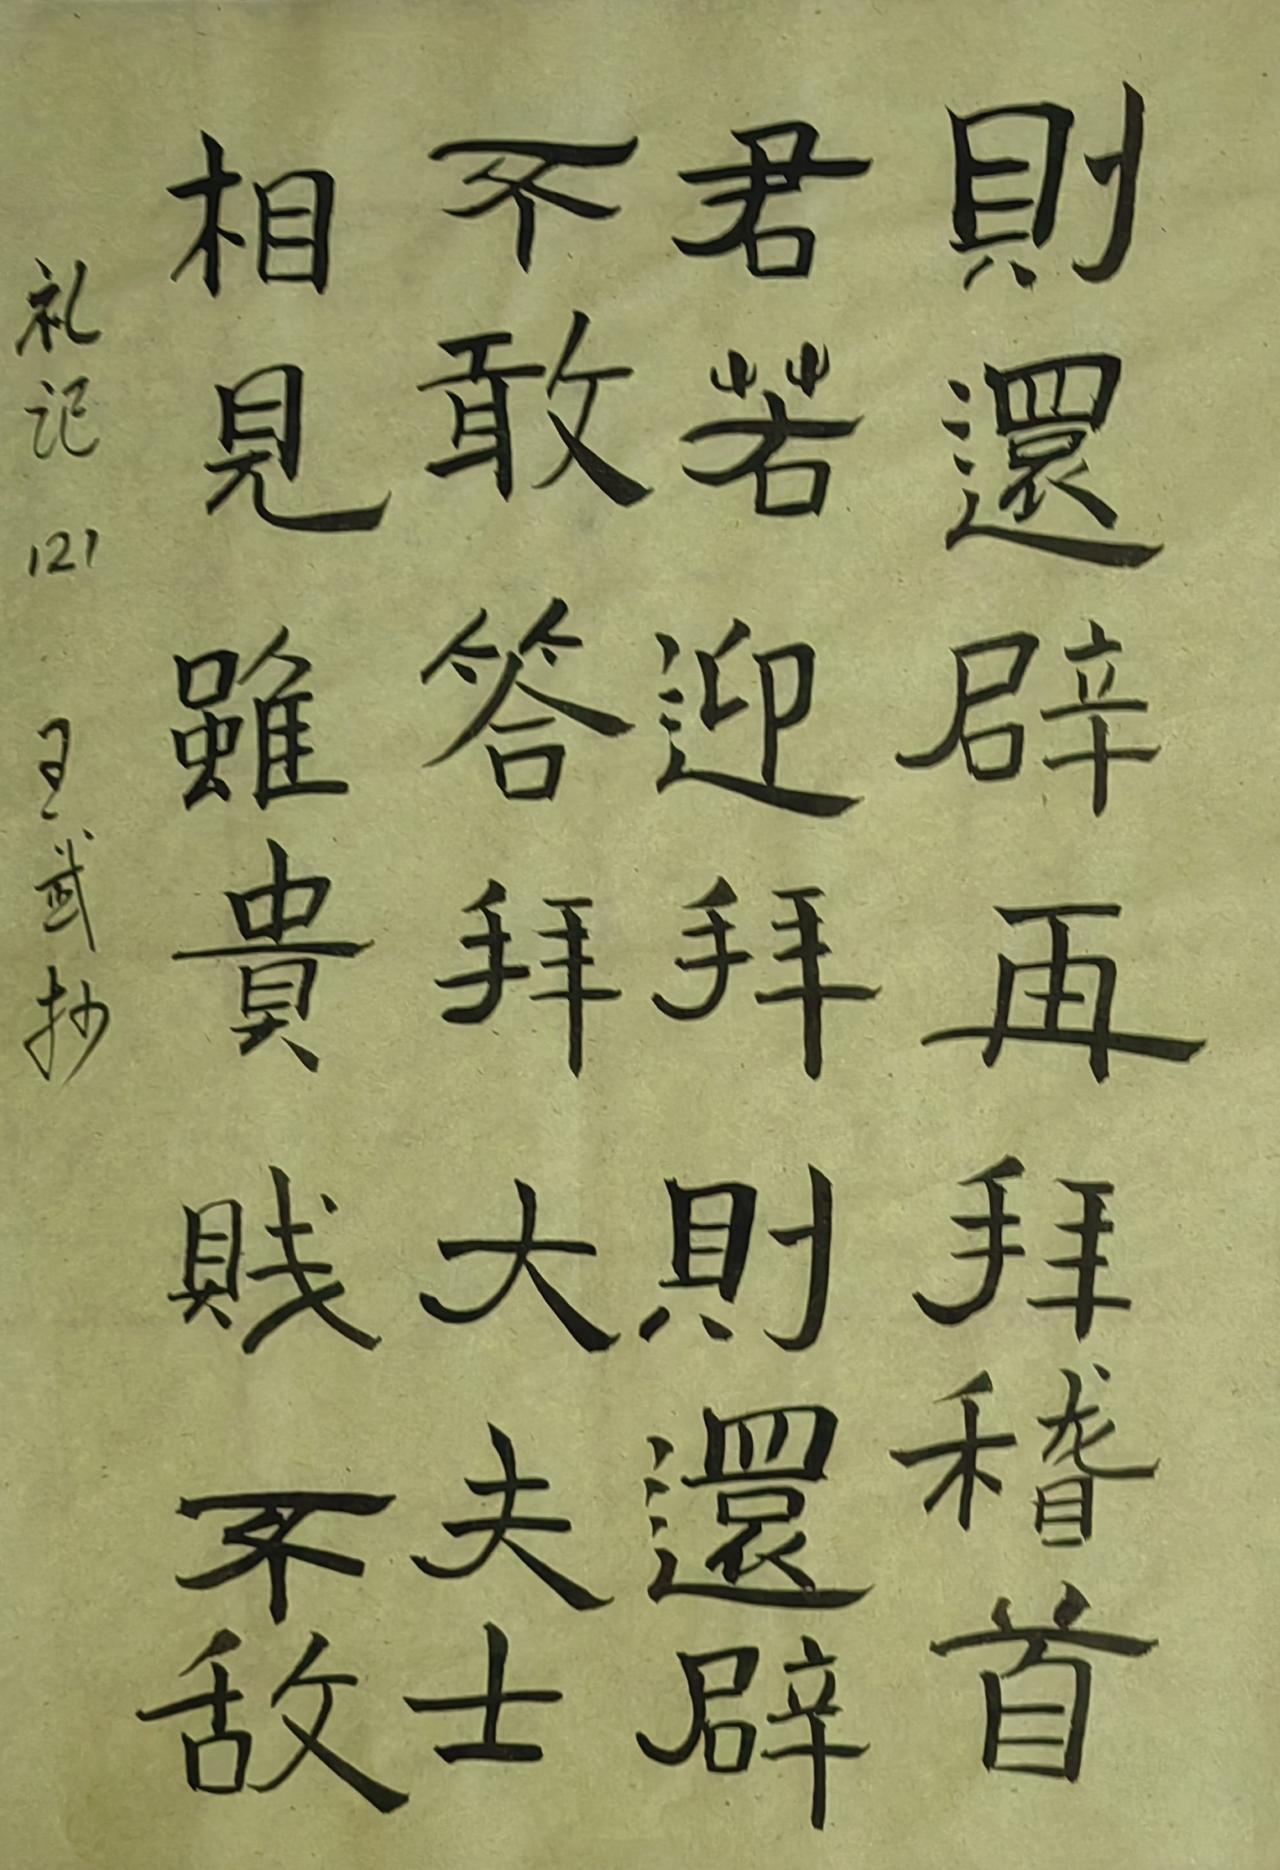 則還辟再拜稽首
君若迎拜則還辟
不敢答拜大夫士
相見雖貴賤不敌
礼记121 王武抄